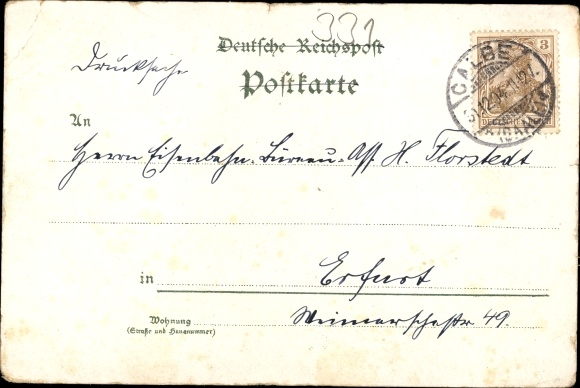 331
Deutsche Reichspost
Drucksache
Postkarte
3
CALBE
An
Herrn Eisenbahn-Büreau-Asst. H. Florstedt
in Erfurt
Wohnung
(Straße und Hausnummer)
Weimarschestr 49.